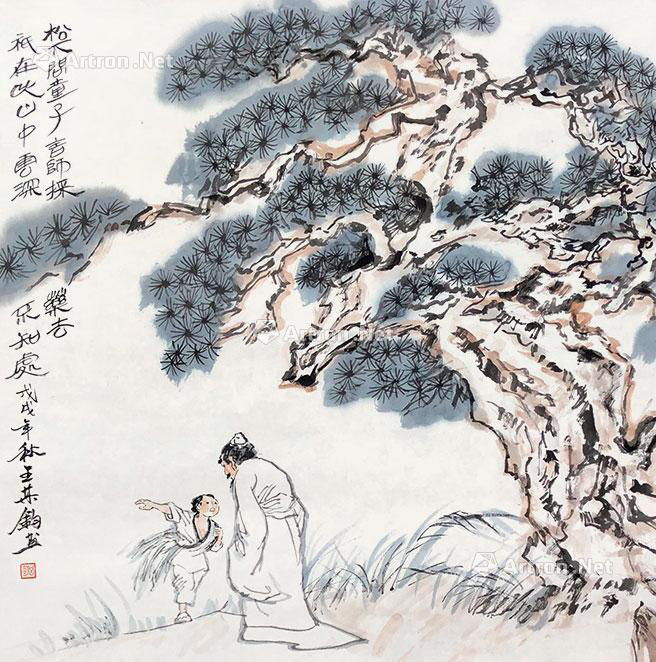 松下問童子言師採
藥去
祇在此山中雲深
不知處 戊戌年秋王其鈞畫
Artron.Net
Artron.Net
Artron.Net
Artron.Net
Artron.Net